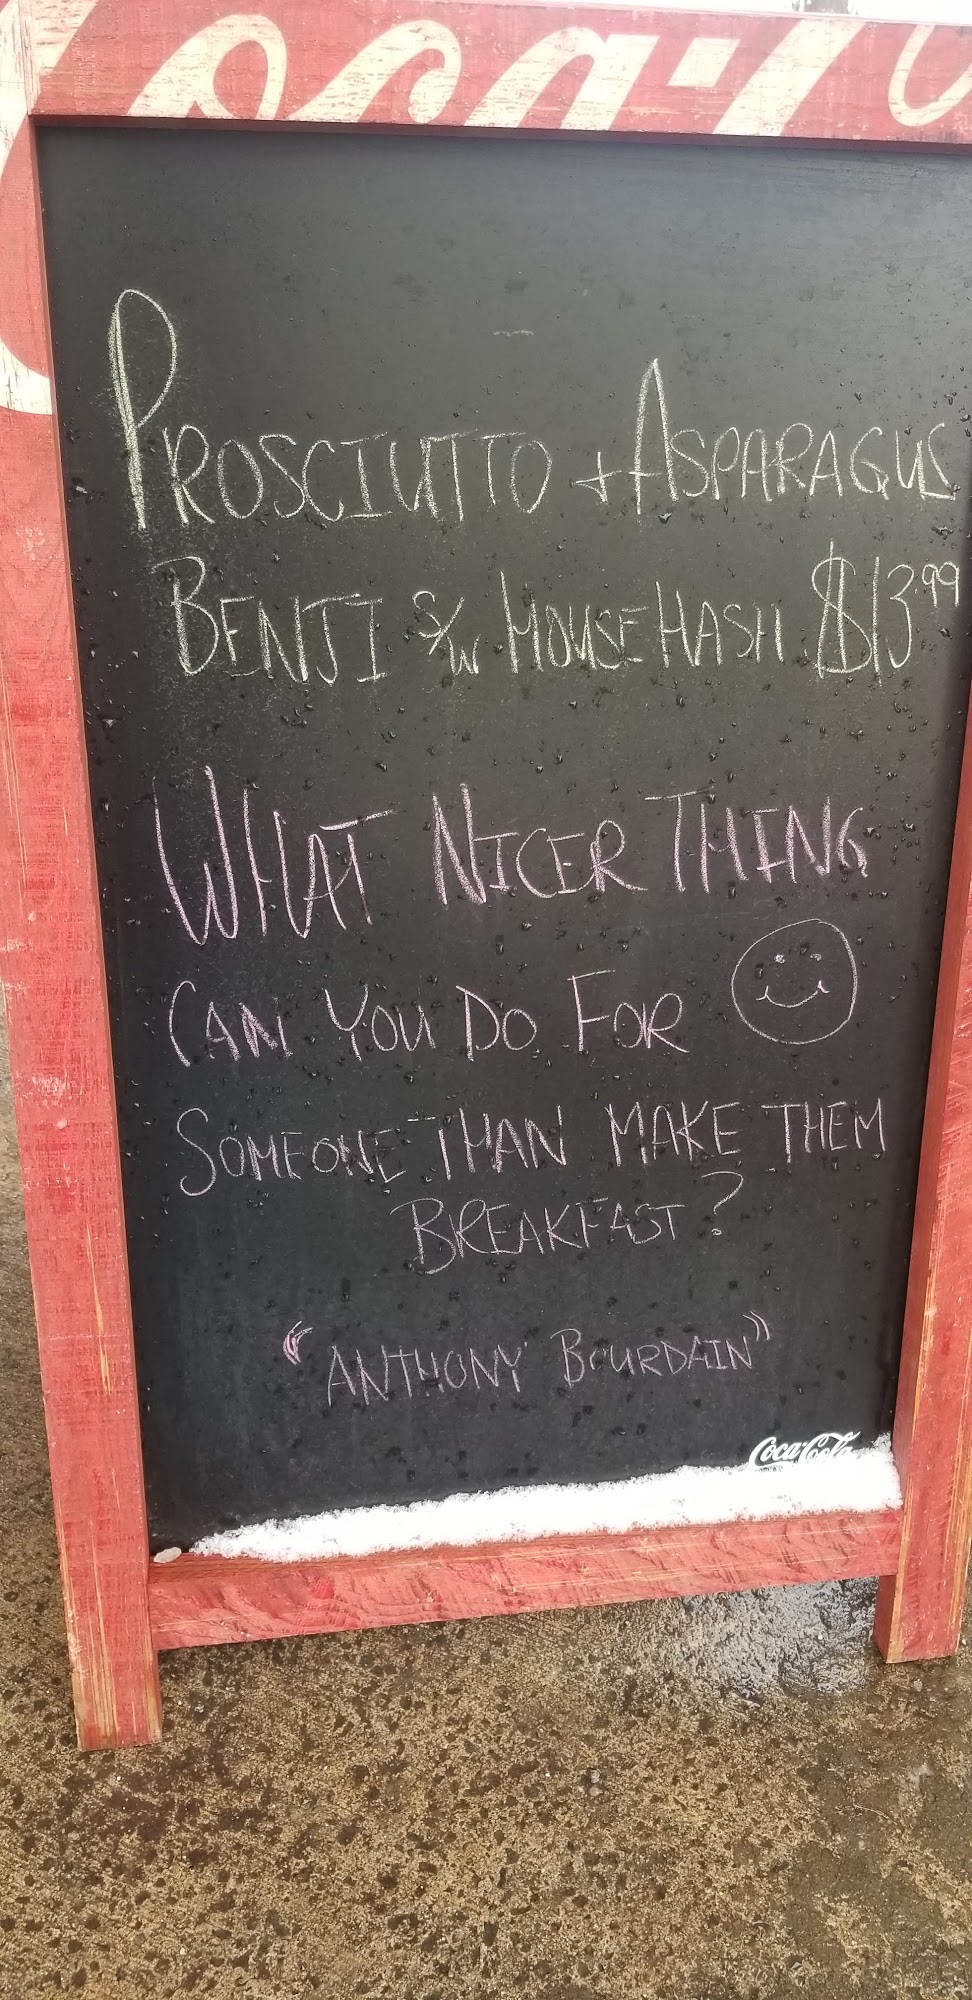 Coca-Co
PROSCIUTTO + ASPARAGUS
BENJI S/W HOUSE HASH $13.99
WHAT NICER THING
CAN YOU DO FOR
SOMEONE THAN MAKE THEM
BREAKFAST?
"ANTHONY BOURDAIN"
Coca-Cola